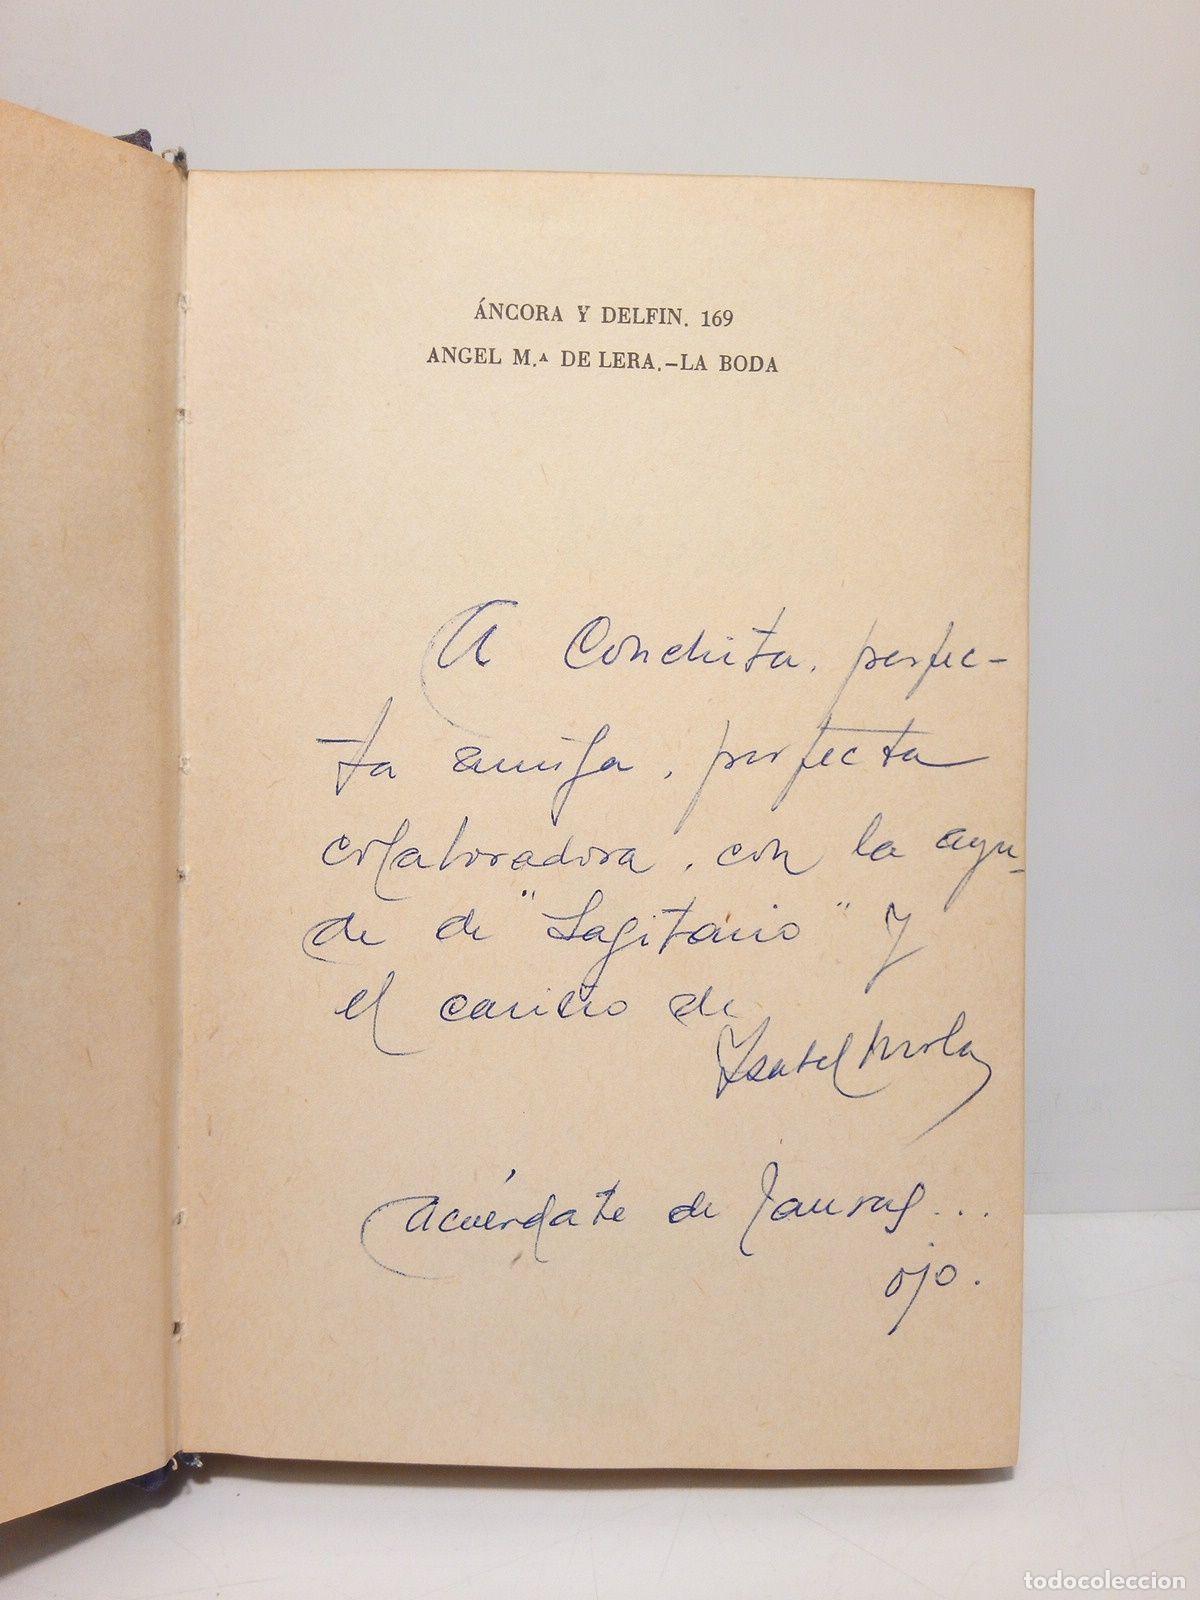 ÁNCORA Y DELFIN. 169
ANGEL M.ª DE LERA.-LA BODA
A Conchita, perfec-
ta amiga, perfecta
colaboradora, con la ayu-
da de "Sagitario" y
el cariño de
Isabel
Acuérdate de Tauras...
ojo.
todocoleccion